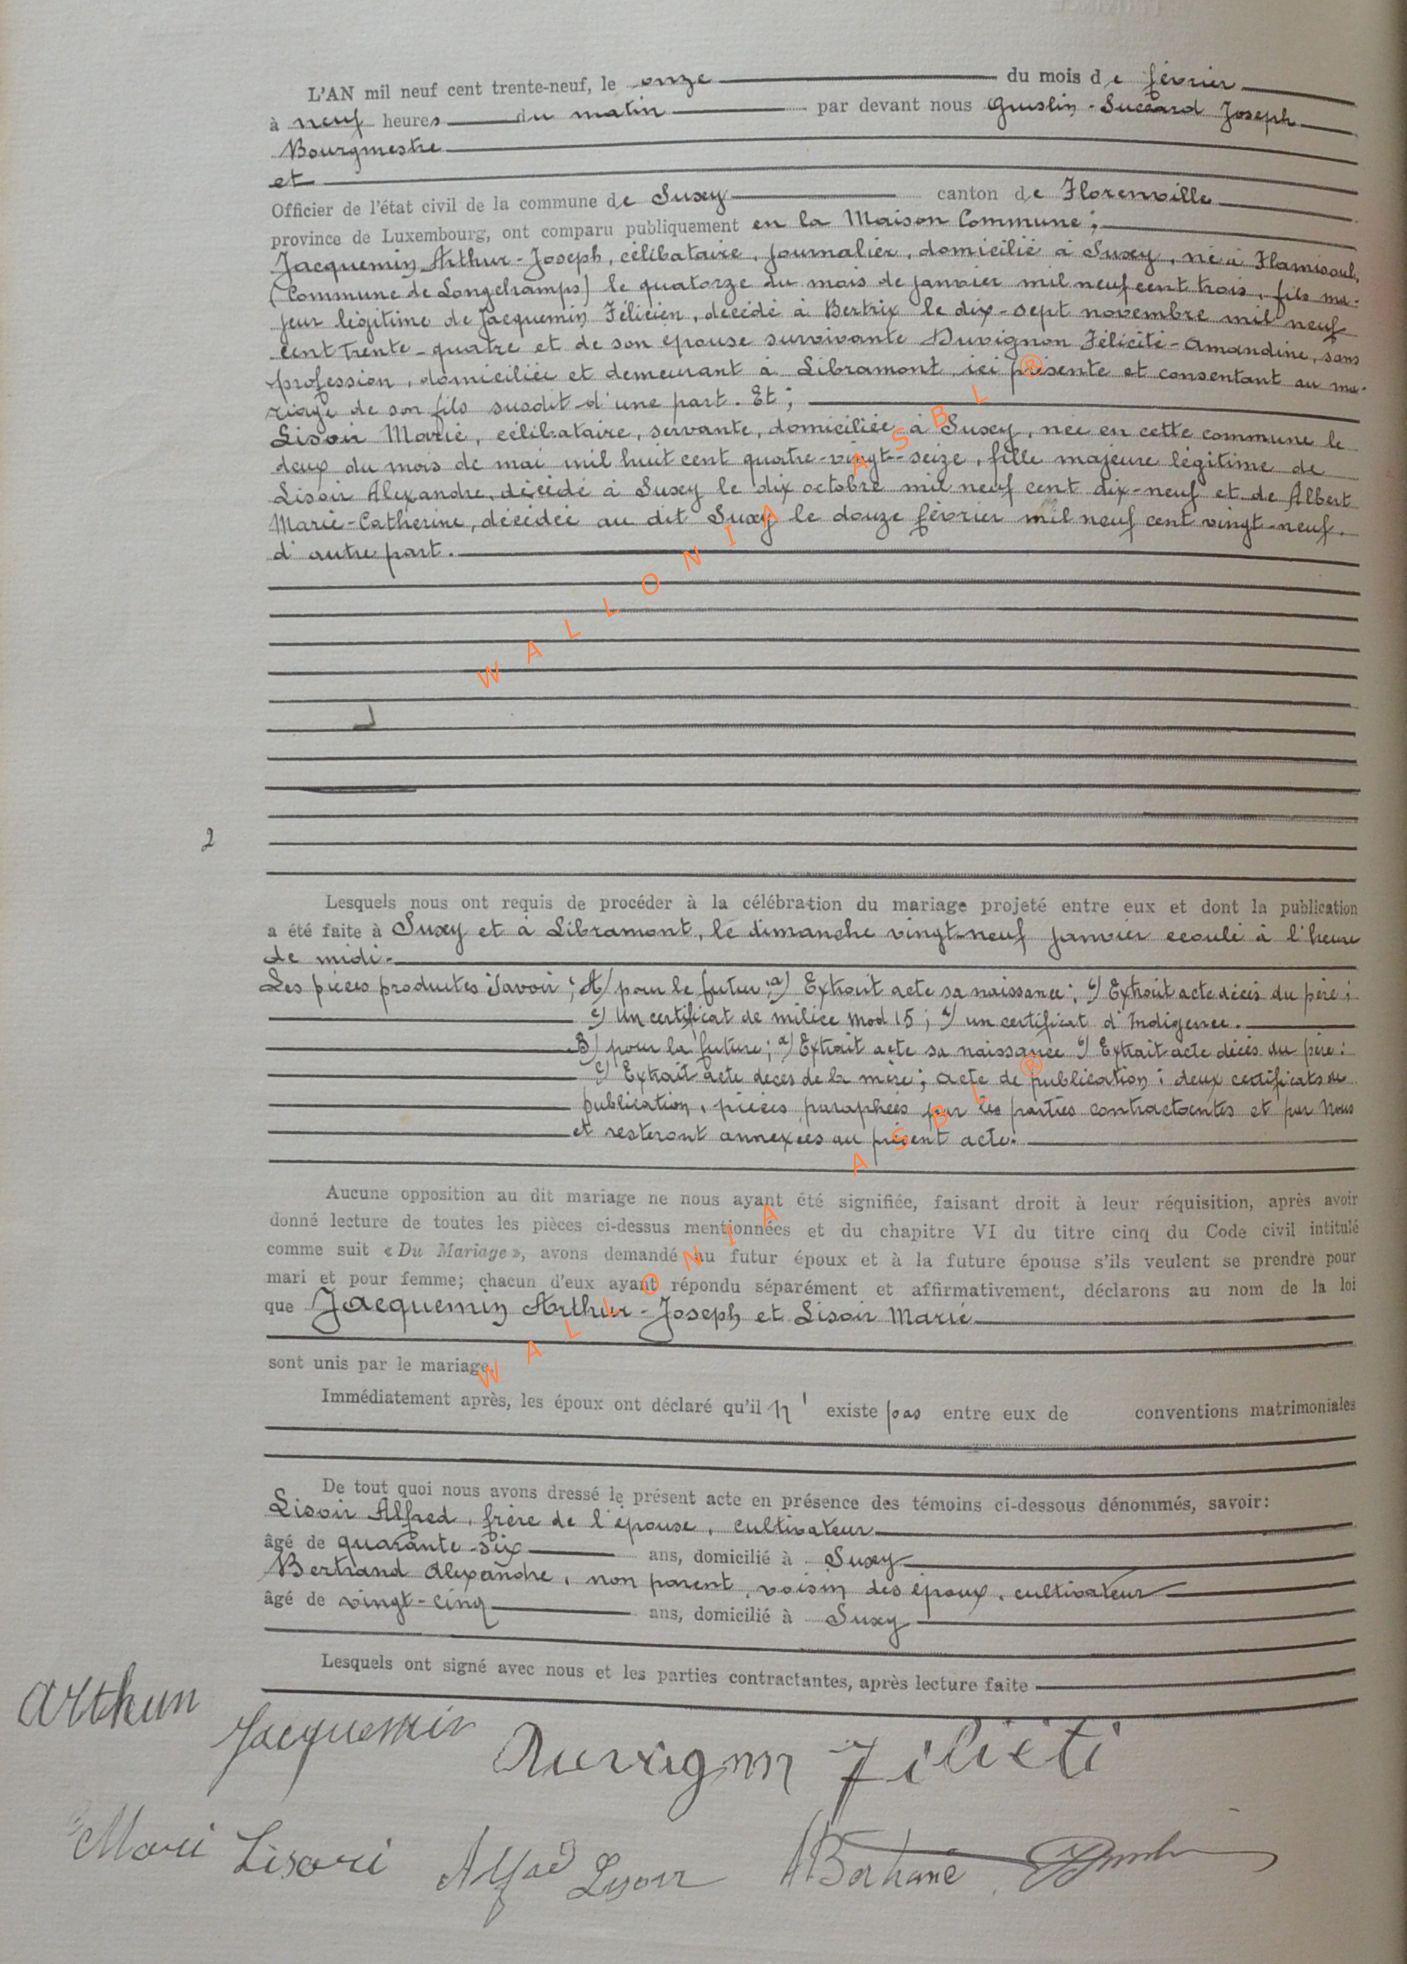 L'AN mil neuf cent trente-neuf, le onze du mois de février
à neuf heures du matin par devant nous Guislin-Suczard Joseph
Bourgmestre
et
Officier de l'état civil de la commune de Suxy canton de Florenville
province de Luxembourg, ont comparu publiquement en la Maison Commune ;
Jacquemin Arthur-Joseph, célibataire, journalier, domicilié à Suxy, né à Flamisoul,
(Commune de Longchamps) le quatorze du mois de janvier mil neuf cent trois, fils ma-
jeur légitime de Jacquemin Félicien, décédé à Bertrix le dix-sept novembre mil neuf
cent trente-quatre et de son épouse survivante Duvignon Félicité-Amandine, sans
profession, domiciliée et demeurant à Libramont, ici présente et consentant au ma-
riage de son fils susdit d'une part. Et ;
Lisoir Marie, célibataire, servante, domiciliée à Suxy, née en cette commune le
deux du mois de mai mil huit cent quatre-vingt-seize, fille majeure légitime de
Lisoir Alexandre, décédé à Suxy le dix octobre mil neuf cent dix-neuf et de Albert
Marie-Catherine, décédée au dit Suxy le douze février mil neuf cent vingt-neuf.
d'autre part.
2
Lesquels nous ont requis de procéder à la célébration du mariage projeté entre eux et dont la publication
a été faite à Suxy et à Libramont, le dimanche vingt-neuf janvier écoulé à l'heure
de midi.
Les pièces produites savoir ; A) pour le futur ; a) Extrait acte sa naissance ; b) Extrait acte décès du père ;
c) Un certificat de milice Mod 15 ; d) un certificat d'Indigence.
B) pour la future ; a) Extrait acte sa naissance b) Extrait acte décès du père :
c) Extrait acte décès de la mère ; acte de publication ; deux certificats de
publication, pièces paraphées par les parties contractantes et par Nous
et resteront annexées au présent acte.
Aucune opposition au dit mariage ne nous ayant été signifiée, faisant droit à leur réquisition, après avoir
donné lecture de toutes les pièces ci-dessus mentionnées et du chapitre VI du titre cinq du Code civil intitulé
comme suit « Du Mariage », avons demandé au futur époux et à la future épouse s'ils veulent se prendre pour
mari et pour femme; chacun d'eux ayant répondu séparément et affirmativement, déclarons au nom de la loi
que Jacquemin Arthur-Joseph et Lisoir Marie
sont unis par le mariage.
Immédiatement après, les époux ont déclaré qu'il n' existe pas entre eux de conventions matrimoniales
De tout quoi nous avons dressé le présent acte en présence des témoins ci-dessous dénommés, savoir:
Lisoir Alfred, frère de l'épouse, cultivateur
âgé de quarante-six ans, domicilié à Suxy
Bertrand Alexandre, non parent, voisin des époux, cultivateur
âgé de vingt-cinq ans, domicilié à Suxy
Lesquels ont signé avec nous et les parties contractantes, après lecture faite
Arthur Jacquemin Duvignon Féliciti
Mari Lisori Alfred Lisoir A Bertrand
WALLONIA ASBL ®
WALLONIA ASBL ®